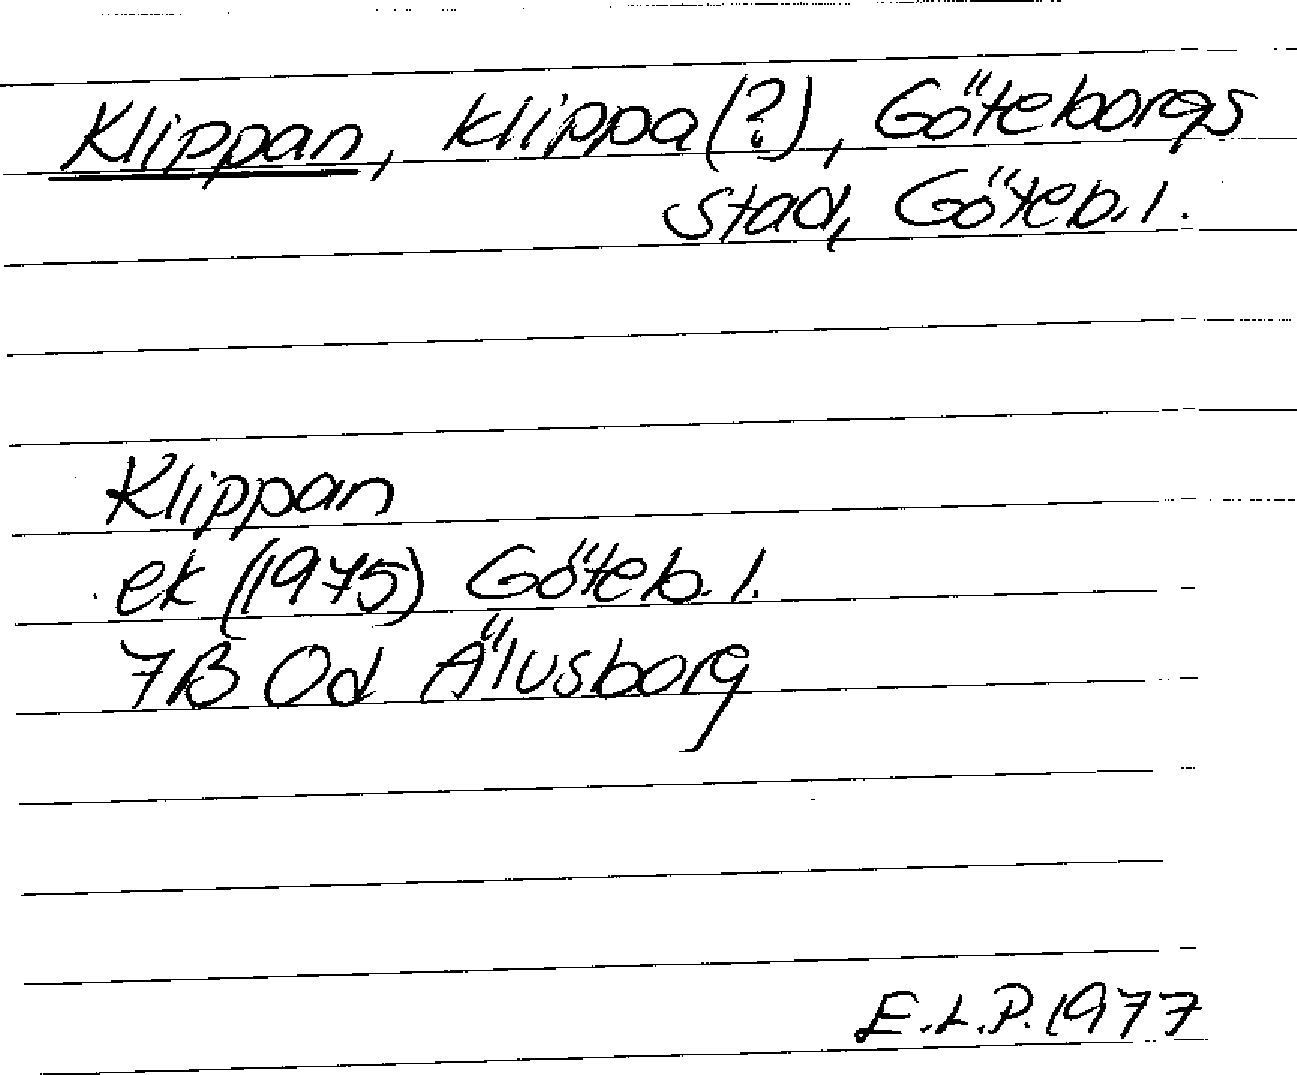 Klippan, klippa(?), Göteborgs
stad, Göteb. l.
Klippan
ek (1975) Göteb. l.
7B 0d Älvsborg
E.L.P. 1977